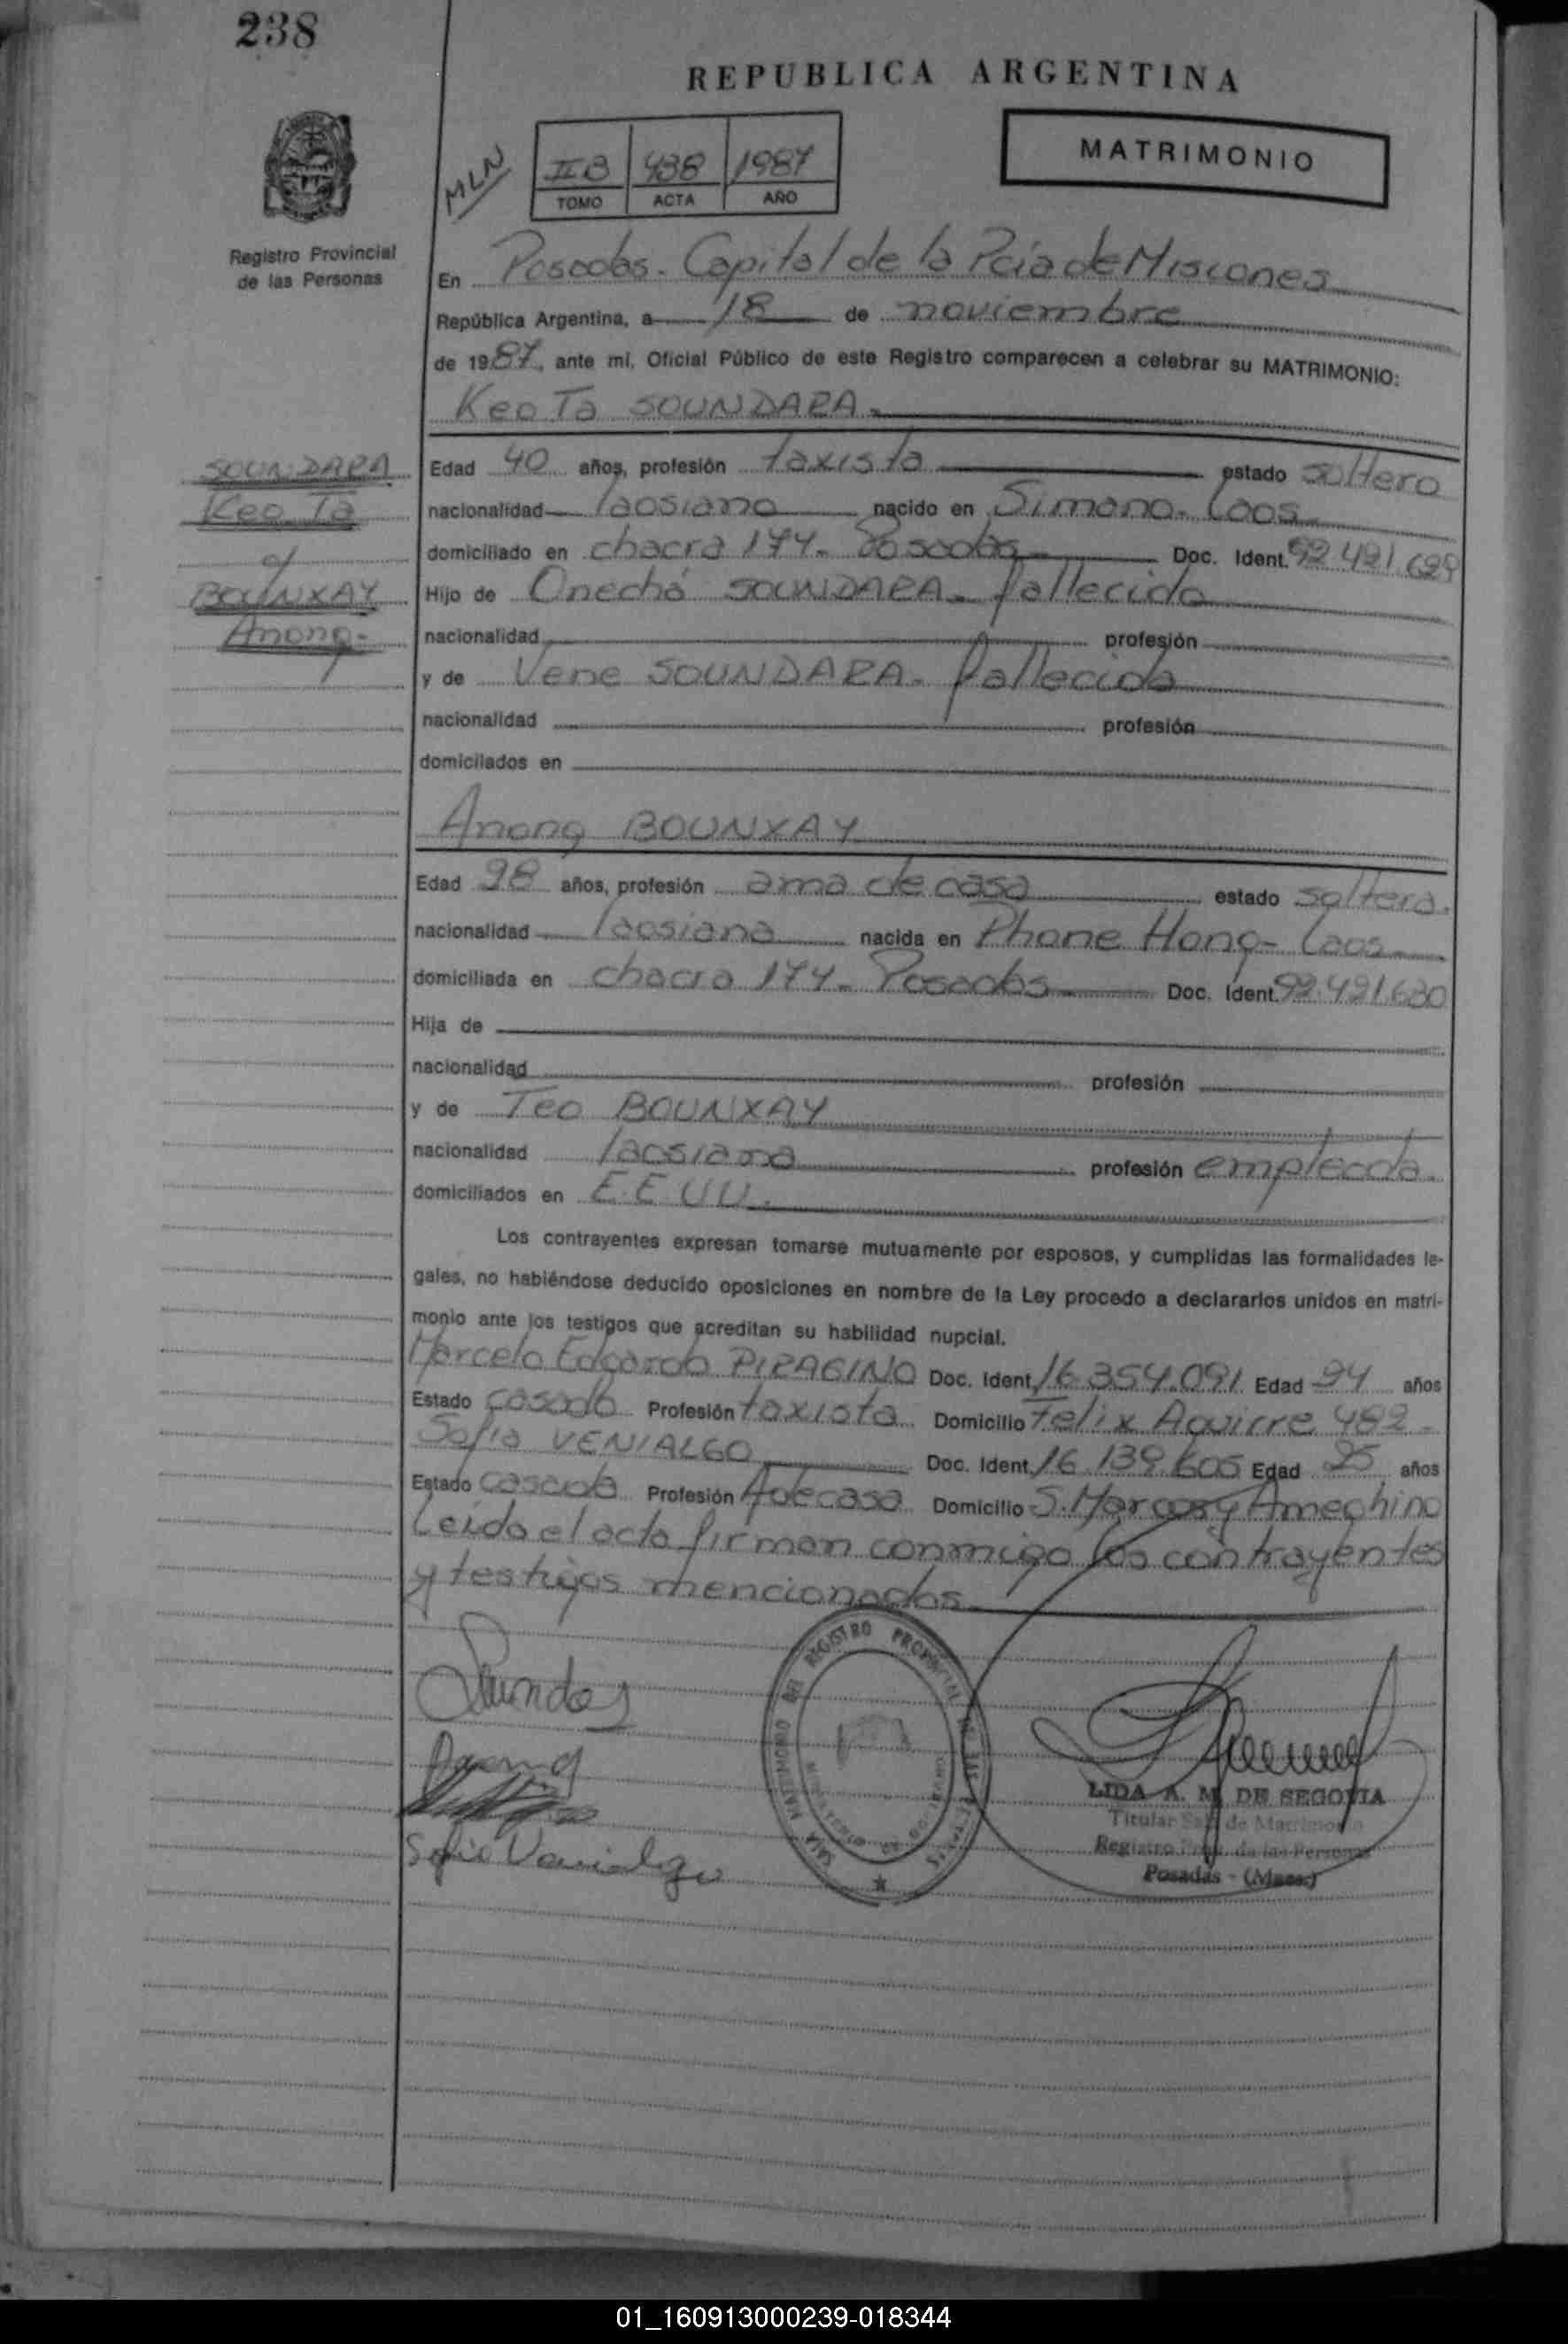 238
REPUBLICA ARGENTINA
MLN
II B 438 1987
TOMO ACTA AÑO
MATRIMONIO
Registro Provincial
de las Personas
En Posadas. Capital de la Pcia de Misiones
República Argentina, a 18 de noviembre
de 1987, ante mí, Oficial Público de este Registro comparecen a celebrar su MATRIMONIO:
Keo Ta SOUNDARA.
SOUNDARA
Keo Ta
c/
BOUNXAY
Anong.
Edad 40 años, profesión taxista estado soltero
nacionalidad laosiano nacido en Simano. Laos.
domiciliado en chacra 144. Posadas Doc. Ident. 92.421.629
Hijo de Onechá SOUNDARA. fallecido
nacionalidad profesión
y de Vene SOUNDARA. fallecida
nacionalidad profesión
domicilados en
Anong BOUNXAY
Edad 28 años, profesión ama de casa estado soltera.
nacionalidad laosiana nacida en Phone Hong- Laos
domiciliada en chacra 144. Posadas Doc. Ident. 92.421.630
Hija de
nacionalidad profesión
y de Teo BOUNXAY
nacionalidad laosiana profesión empleada.
domiciliados en E.E U.U.
Los contrayentes expresan tomarse mutuamente por esposos, y cumplidas las formalidades le-
gales, no habiéndose deducido oposiciones en nombre de la Ley procedo a declararlos unidos en matri-
monio ante los testigos que acreditan su habilidad nupcial.
Marcelo Edgardo PIRAGINO Doc. Ident. 16.354.091 Edad 24 años
Estado casado Profesión taxista Domicilio Felix Aguirre 482.
Sofia VENIALGO Doc. Ident. 16.139.605 Edad 25 años
Estado casada Profesión A de casa Domicilio S. Marcos y Ameghino
Leida el acta firman conmigo los contrayentes
y testigos mencionados.
Anong
Sofia Venialgo
SALA MATRIMONIO DEL REGISTRO PROVINCIAL DE LAS PERSONAS
LIDA A. M. DE SEGOVIA
Titular Sala de Matrimonio
Registro Prov. de las Personas
Posadas - (Mnes.)
01_160913000239-018344